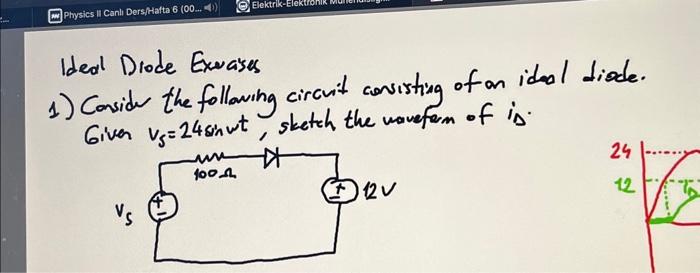 Physics II Canlı Ders/Hafta 6 (00...
Ideal Diode Exercises
1) Consider the following circuit consisting of an ideal diode.
Given vs=24sinwt, sketch the waveform of iD.
100Ω
Vs
+
-
+
-
12V
24
12